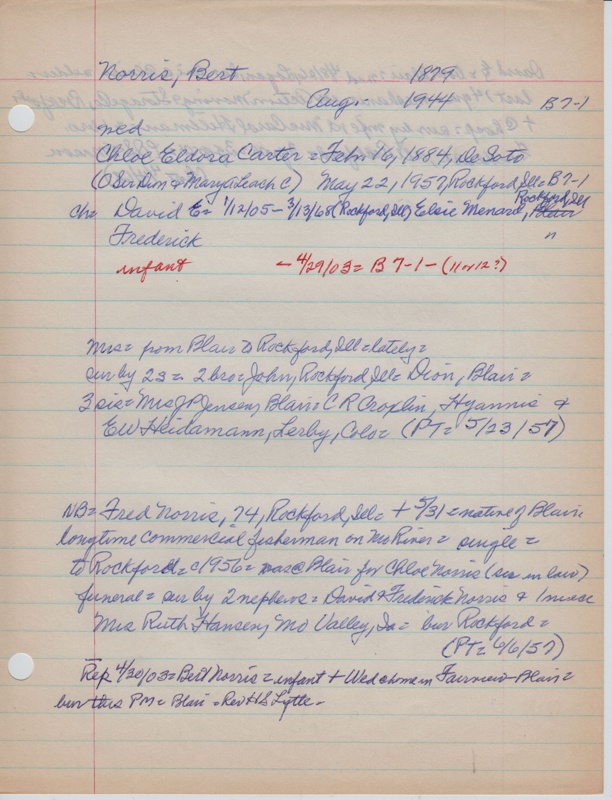 Norris, Bert 1879
Aug. - 1944 B7-1
med
Chloe Eldora Carter = Febr 16, 1884, DeSoto
(O Ser Dim & Mary A Leach C) May 22, 1957, Rockford, Ill = B7-1
ch = David E = 1/12/05 - 3/13/68 (Rockford, Ill) Elsie Menard, Rockford, Ill Blair
Frederick n
infant - 4/29/03 = B7-1 - (11 or 12?)
Mrs = from Blair to Rockford, Ill = lately =
sur by 2s = 2 bro = John, Rockford, Ill = Dion, Blair =
3 sis = Mrs JP Jensen, Blair = C R Croplin, Hyannis &
EW Heidamann, Lerby, Colo = (PT = 5/23/57)
NB = Fred Norris, 74, Rockford, Ill = + 5/31 = native of Blair =
longtime commercial fisherman on Mo River = single =
to Rockford = c1956 = Blair for Chloe Norris (sis in law)
funeral = sur by 2 nephews = David & Frederick Norris & 1 niece
Mrs Ruth Hansen, Mo Valley, Ia = bur Rockford =
(PT = 6/6/57)
Rep 4/30/03 = Bert Norris = infant + Wed @ home in Fairview - Blair =
bur this PM = Blair = Rev HS Lytle -